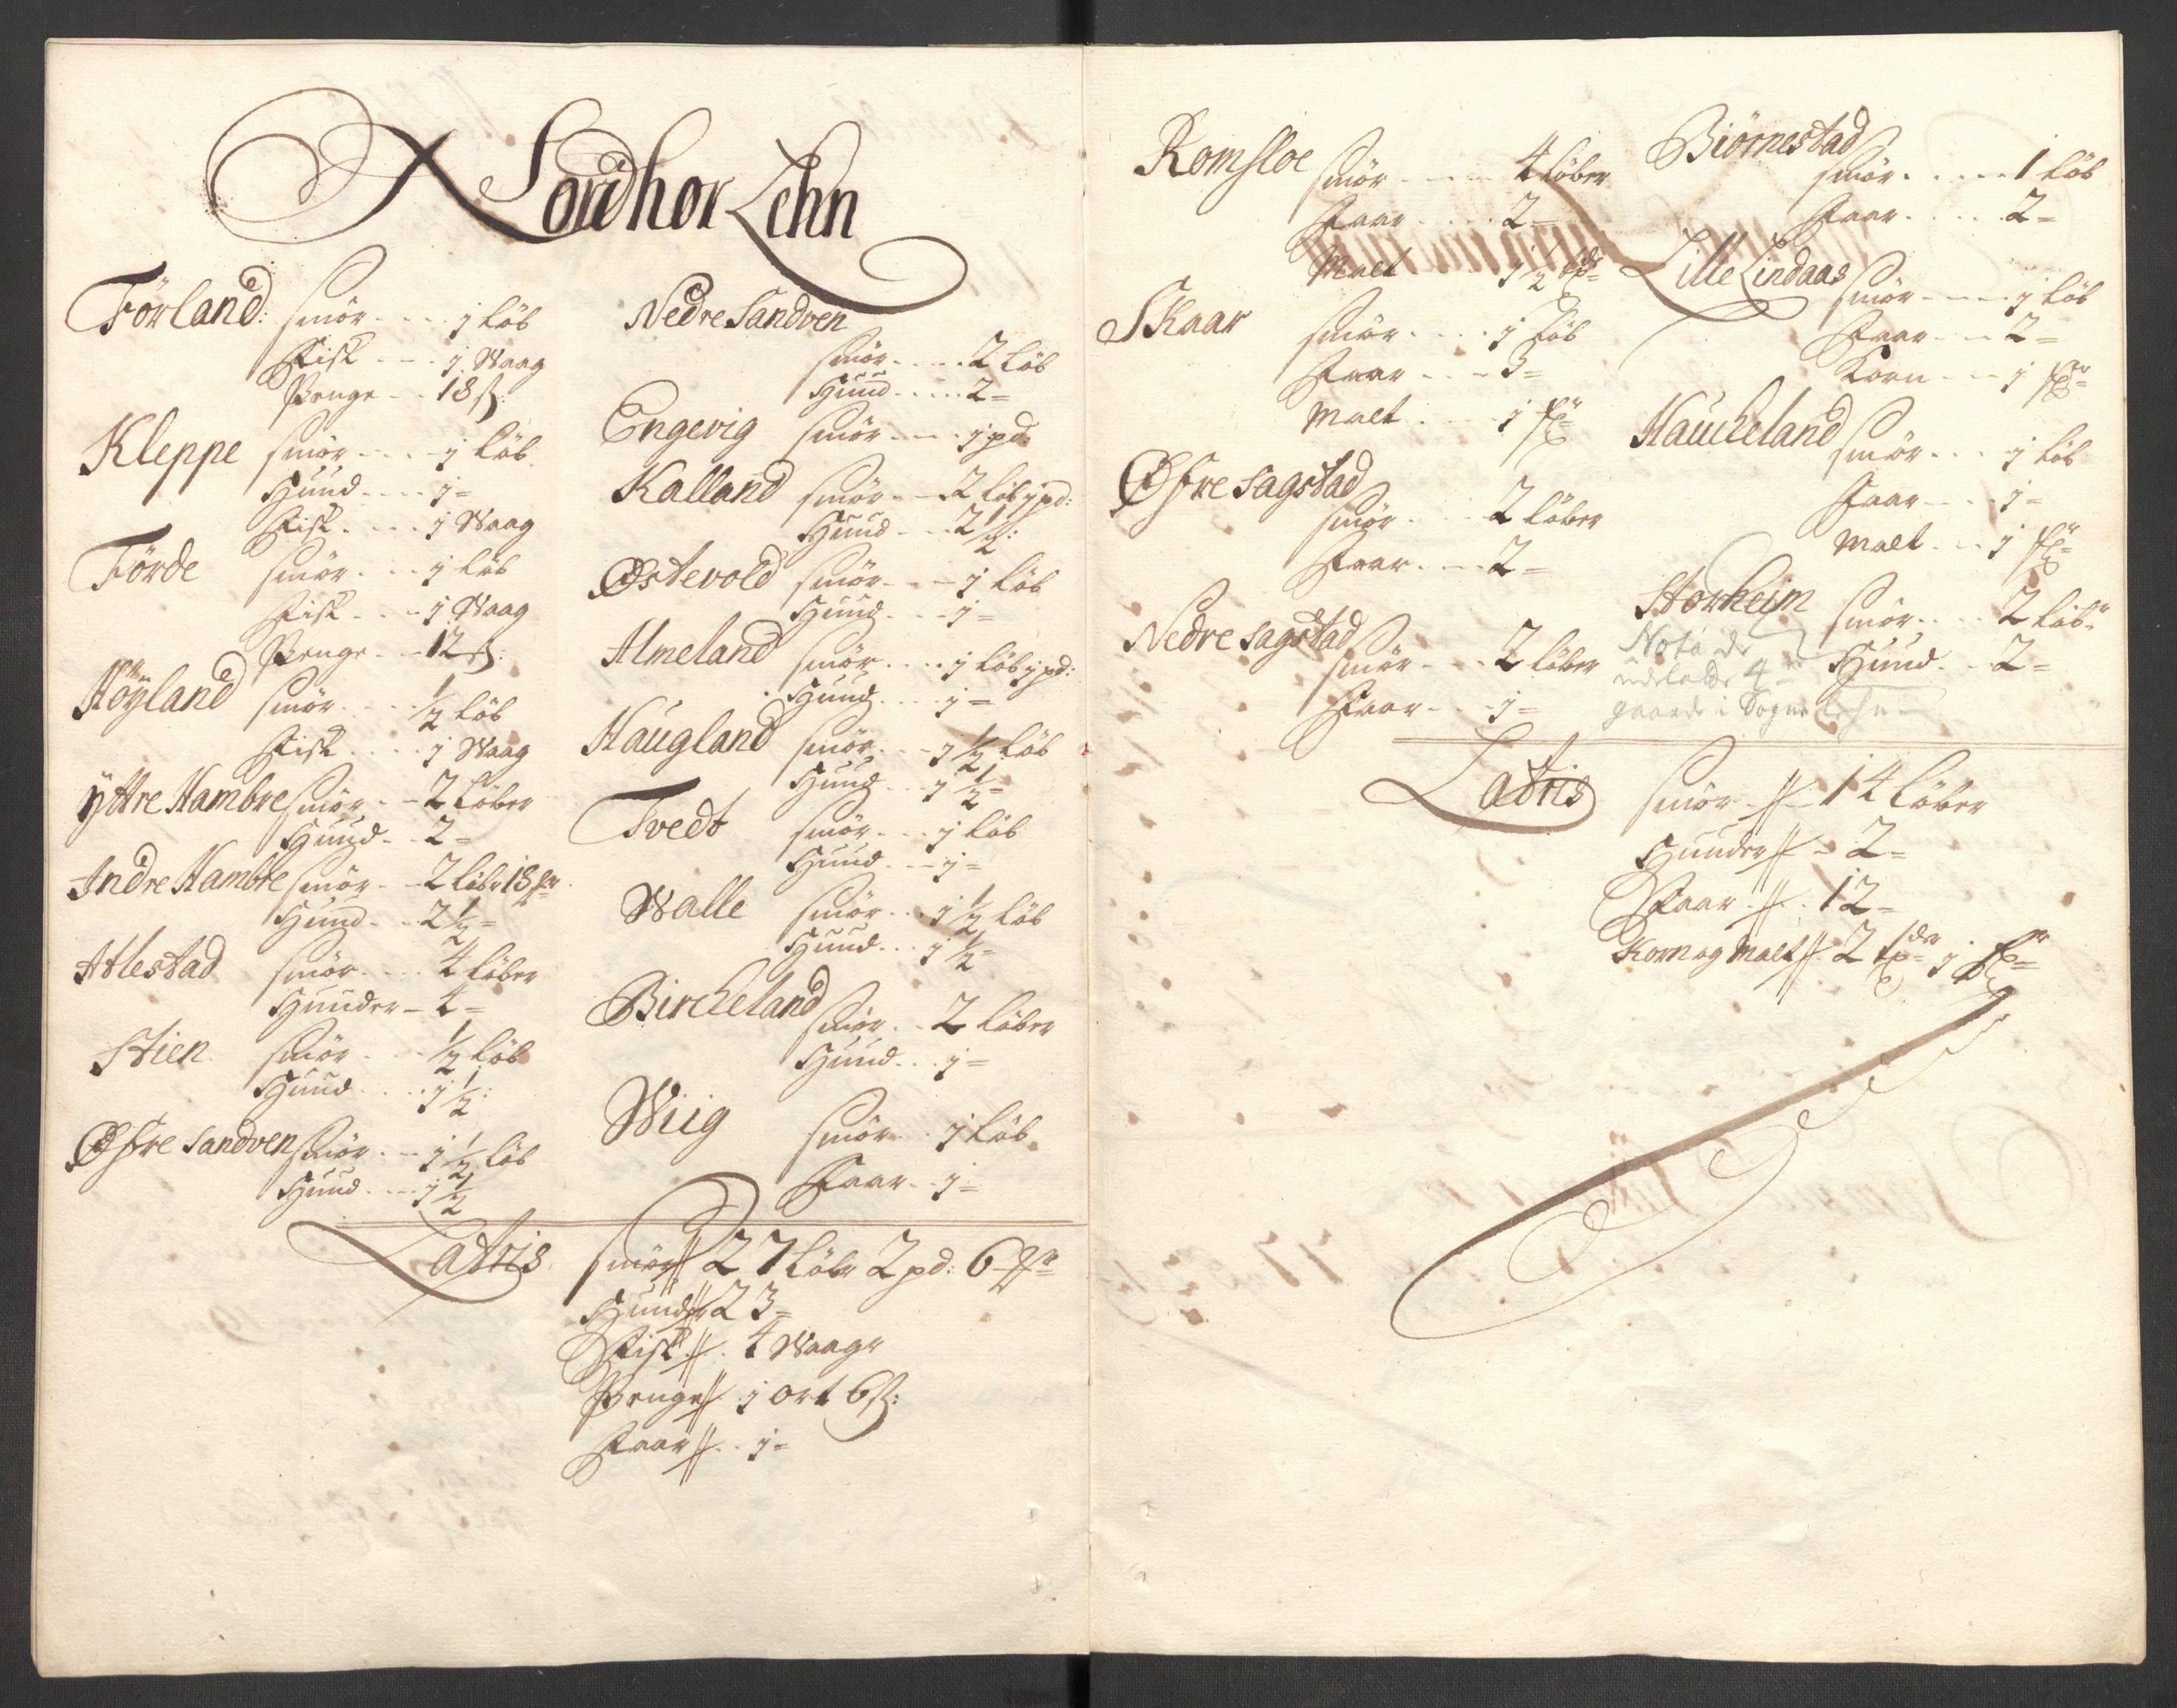 Nordhor Lehn
Förland: smör - - - j Löb
Fisk - - - j. Waag
Penge - - 18 ß:
Kleppe smör - - - j Löb
Huud - - - j =
Fisk . . . . j Waag
Förde smör . . . j Löb
Fisk . . . j Waag
Penge - - 12 ß:
Höÿland smör . . . ½ Löb
Fisk . . . . j Waag
ÿttre Hambre smör - - 2 Löber
Huud - - 2 =
Indre Hambre smör - - 2 Löbr 18
Huud - - 2½ =
Atlestad smör . . . 4 Löber
Huuder - 4 =
Stien smör . . . ½ Löb
Huud . . . j½:
Øfre Sandven smör . - j½ Löb
Huud . . . j½
Nedre Sandven
smör . . . . 2 Löb
Huud . . . . 2 =
Engevig smör - - - j pd:
Kalland smör - - 2 Löb j pd:
Huud - - 2½:
Østevold smör - - - j Löb
Huud . . . j =
Almeland smör . . . . j Löb j pd:
Huud . . . j =
Haugland smör . . . j½ Löb
Huud . . . j½ =
Tvedt smör . . . j Löb
Huud . . - j =
Walle smör . . . j½ Löb
Huud . . . j½ =
Bircheland
smör . . 2 Löber
Huud . . . j =
Wiig smör . . j Löb
Faar . . j =
Latris smör 27 Löbr 2 pd: 6
Huuder 23 =
Fisk . . 4 Waagr
Penge j ort 6 ß:
Faar . . j =
Romsloe smör - - - - 4 Löber
Faar . . . . 2 =
Malt . . . . j½
Skaar smör . . . . j Löb
Faar . . - 3 =
Malt . . . . j
Øfre Sagstad
smör . . . 2 Löber
Faar . . - 2 =
Nedre Sagstad
smör . . . 2 Löber
Faar . . . j =
Biörnestad
smör . . . . . 1 Löb
Faar . . . . 2 =
Lille Lindaas
smör - - - - j Löb
Faar - - - 2 =
Korn - - - j
Haucheland
smör . . . j Löb
Faar - - . j =
Malt . . . j
Storheim smör . . . 2 Löbr
Huud . . 2 =
Nota de
udeladte 4re
gaarde i Sogne Lehn
Latris smör 14 Löber
Huuder - 2 =
Faar . . 12 =
Korn og Malt 2 j